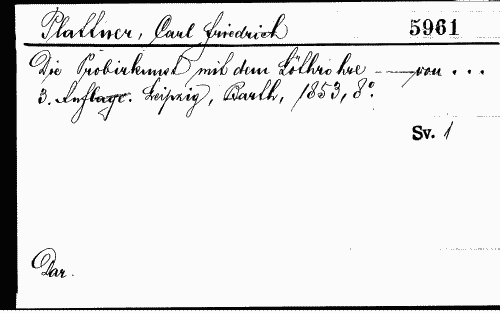 Plattner, Carl Friedrich 5961
Die Probirkunst mit dem Löthrohre — von ...
3. Auflage. Leipzig, Barth, 1853, 8°.
Sv. 1
Dar.